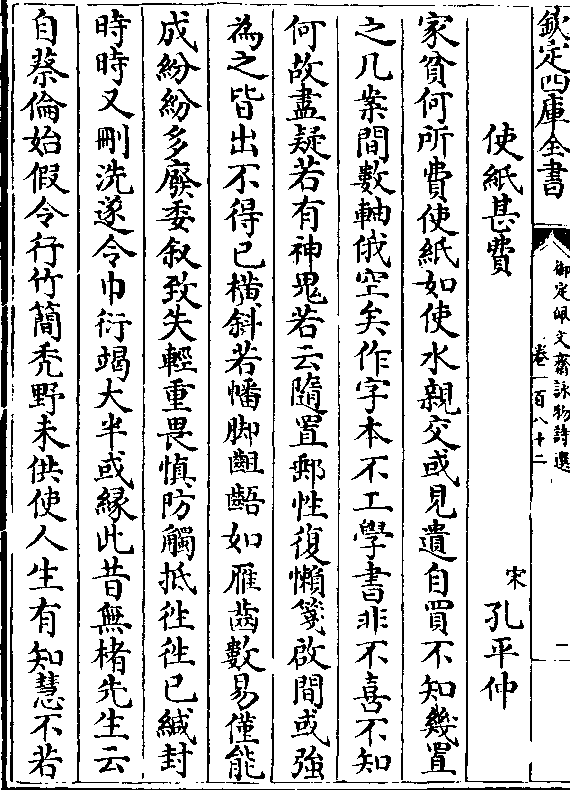 欽定四庫全書
御定佩文齋詠物詩選
卷一百八十二
二
使紙甚費
宋 孔平仲
家貧何所費使紙如使水親交或見遺自買不知幾置
之几案間數軸俄空矣作字本不工學書非不喜不知
何故盡疑若有神鬼若云隨置郵性復懶箋啟間或強
為之皆出不得已橫斜若幡脚齟齬如雁齒數易僅能
成紛紛多廢委叙致失輕重畏慎防觸抵徃徃已緘封
時時又刪洗遂令巾衍竭大半或緣此昔無楮先生云
自蔡倫始假令行竹簡秃野未供使人生有知慧不若